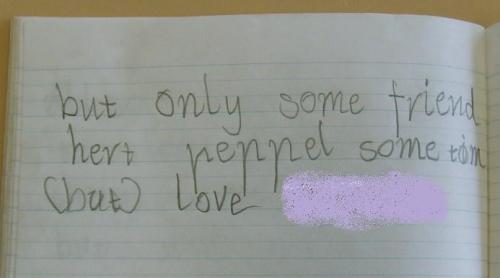 but only some friend
hert peppel some tim
(but) love